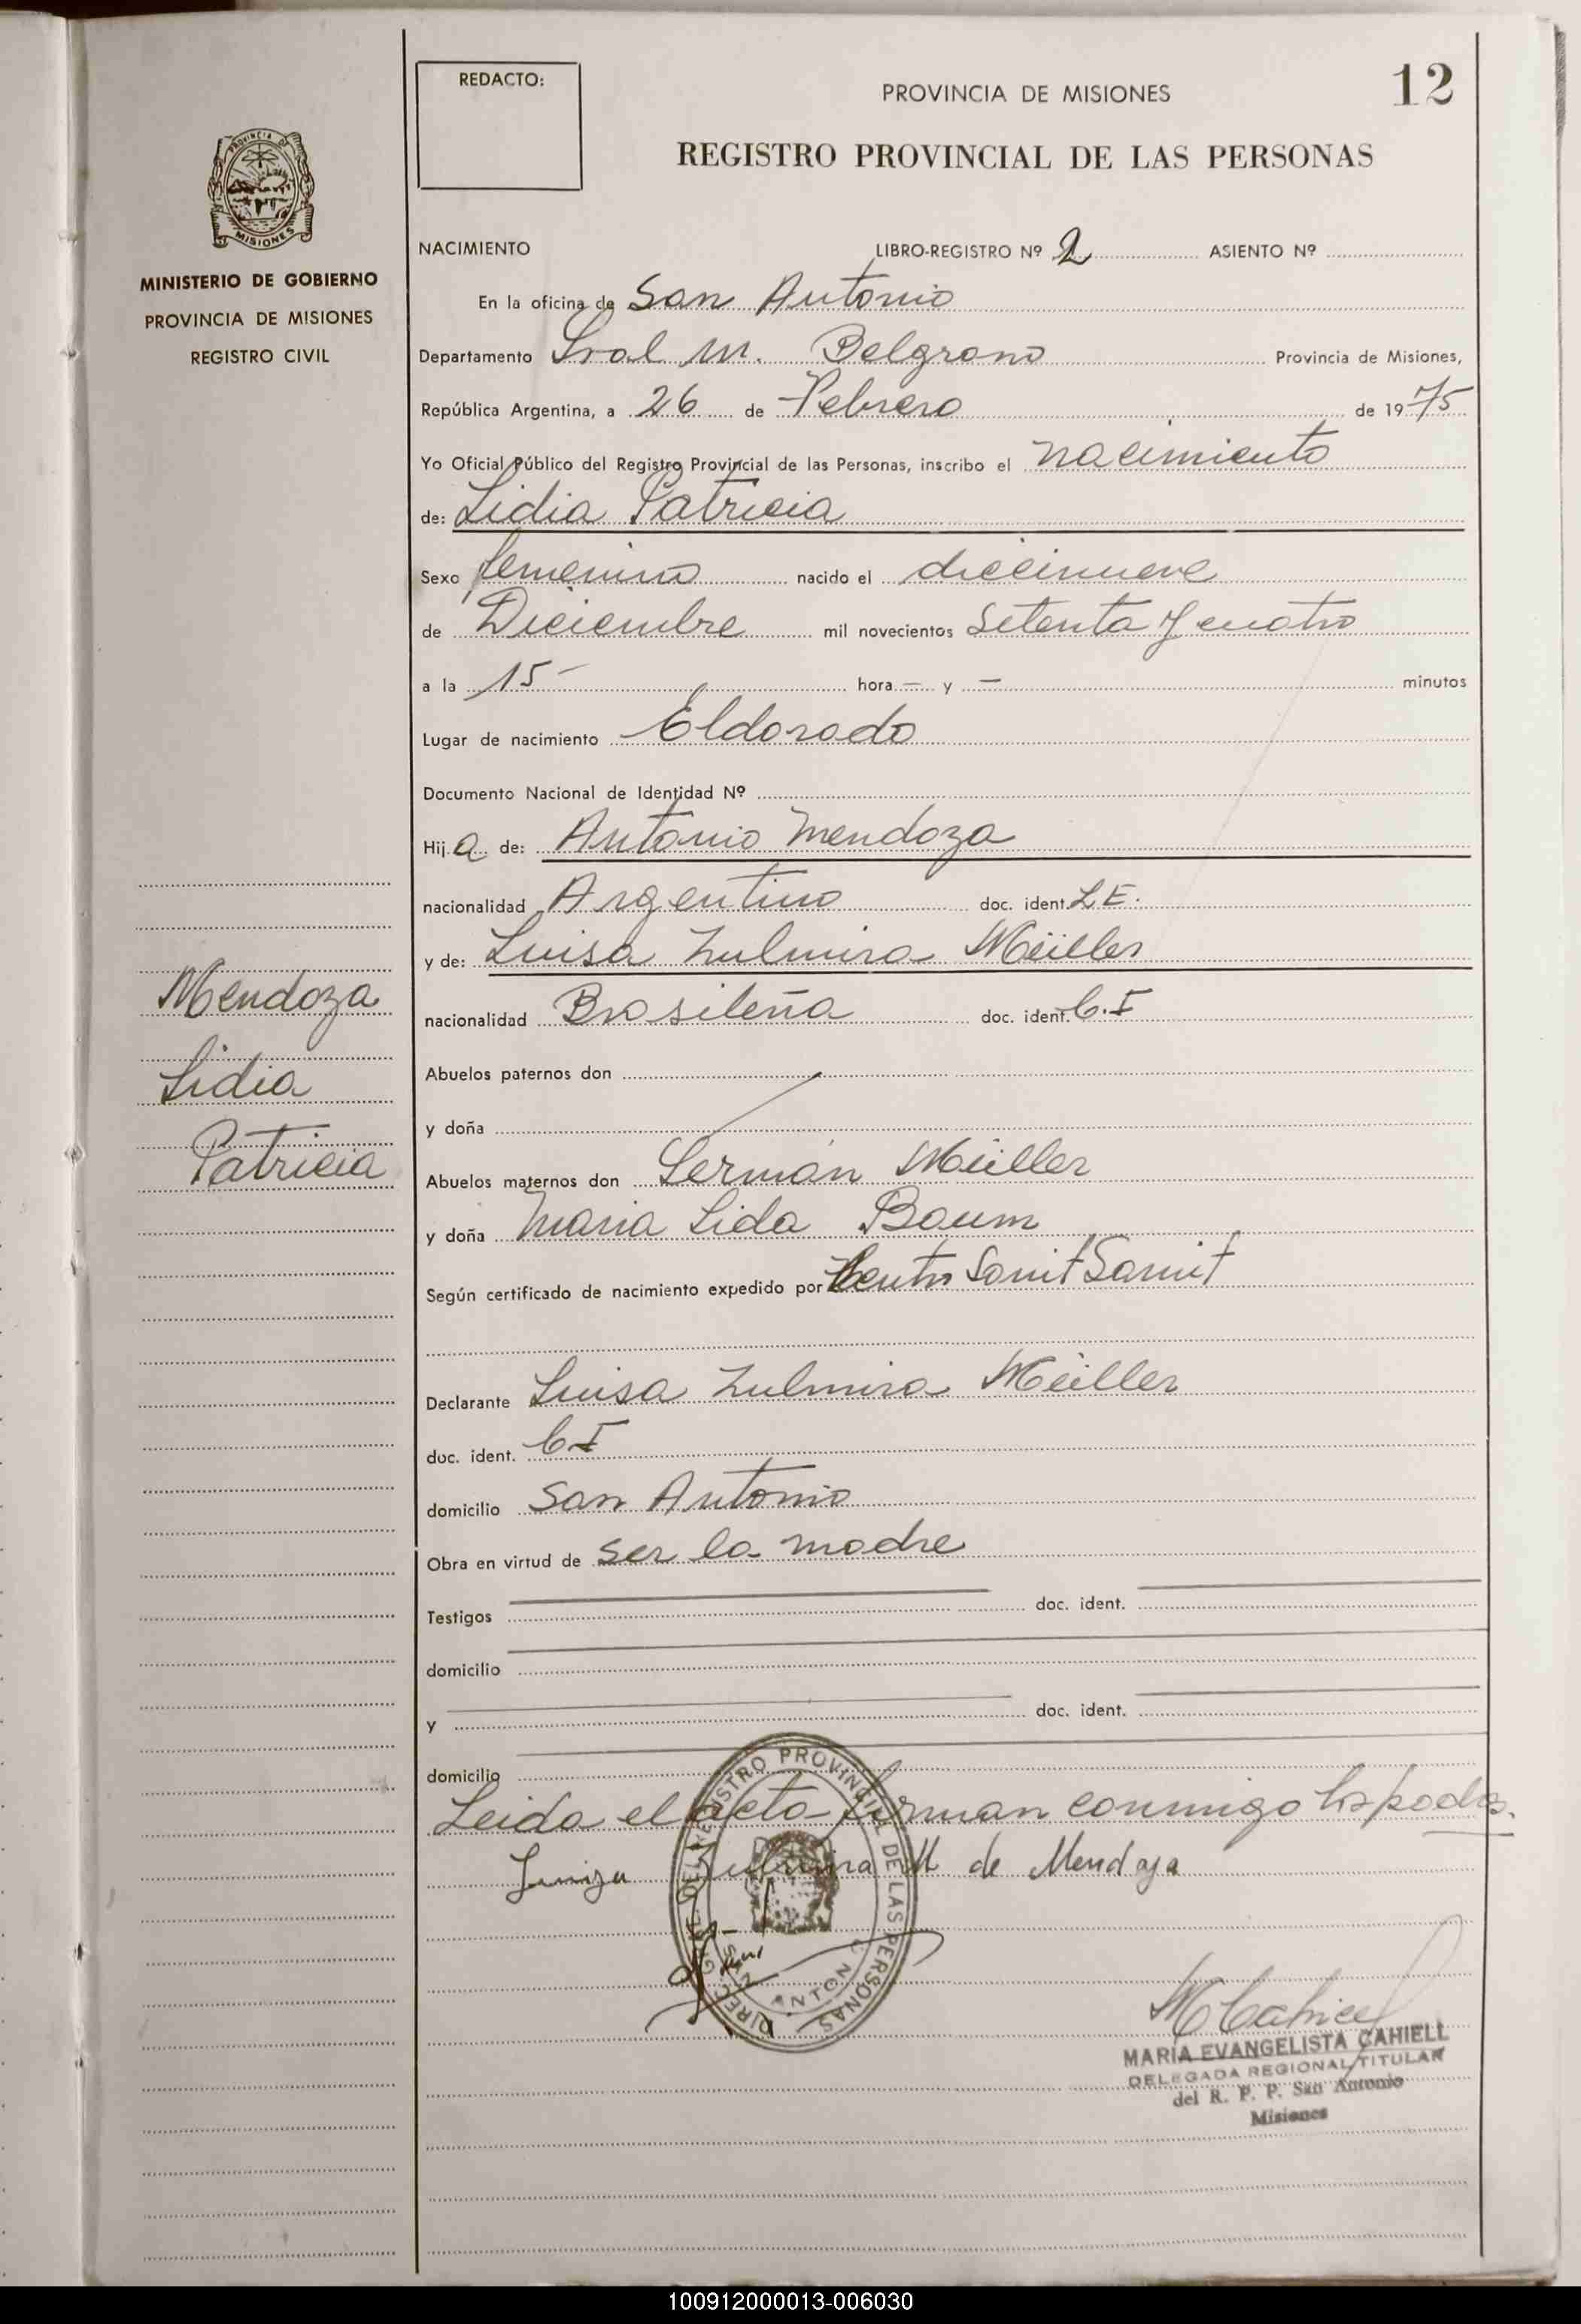 REDACTO:
PROVINCIA DE MISIONES
12
REGISTRO PROVINCIAL DE LAS PERSONAS
MISIONES
MINISTERIO DE GOBIERNO
PROVINCIA DE MISIONES
REGISTRO CIVIL
NACIMIENTO LIBRO-REGISTRO Nº 2 ASIENTO Nº
En la oficina de San Antonio
Departamento Gral M. Belgrano Provincia de Misiones,
República Argentina, a 26 de Febrero de 1975
Yo Oficial Público del Registro Provincial de las Personas, inscribo el nacimiento
de: Lidia Patricia
Sexo femenino nacido el diecinueve
de Diciembre mil novecientos Setenta y cuatro
a la 15 - hora - y - minutos
Lugar de nacimiento Eldorado
Documento Nacional de Identidad Nº
Hija de: Antonio Mendoza
nacionalidad Argentino doc. ident. L E.
y de: Luisa Zulmira Müller
nacionalidad Brasileña doc. ident. C. I
Mendoza
Lidia
Patricia
Abuelos paternos don
y doña
Abuelos maternos don Germán Müller
y doña Maria Lida Baum
Según certificado de nacimiento expedido por Centro Sanit Samit
Declarante Luisa Zulmira Müller
doc. ident. C I
domicilio San Antonio
Obra en virtud de ser la madre
Testigos doc. ident.
domicilio
y doc. ident.
domicilio
Leida el acta firman conmigo los padres.
Luiza Zulmira M de Mendoza
DIREC. GRAL. DEL REGISTRO PROVINCIAL DE LAS PERSONAS
SAN ANTONIO
MARIA EVANGELISTA CAHIELL
DELEGADA REGIONAL TITULAR
del R. P. P. San Antonio
Misiones
100912000013-006030